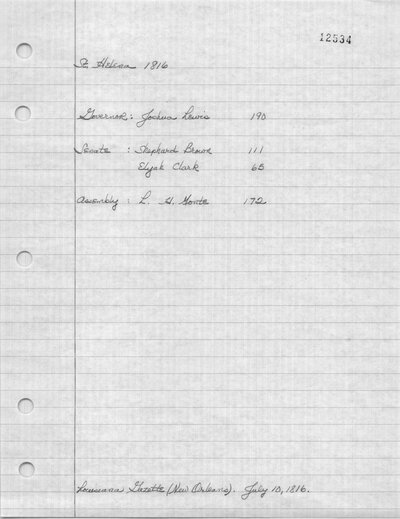 12534
St. Helena 1816
Governor: Joshua Lewis 190
Senate : Shephard Brown 111
Elijah Clark 65
Assembly : L. H. Gonte 172
Louisiana Gazette (New Orleans). July 10, 1816.